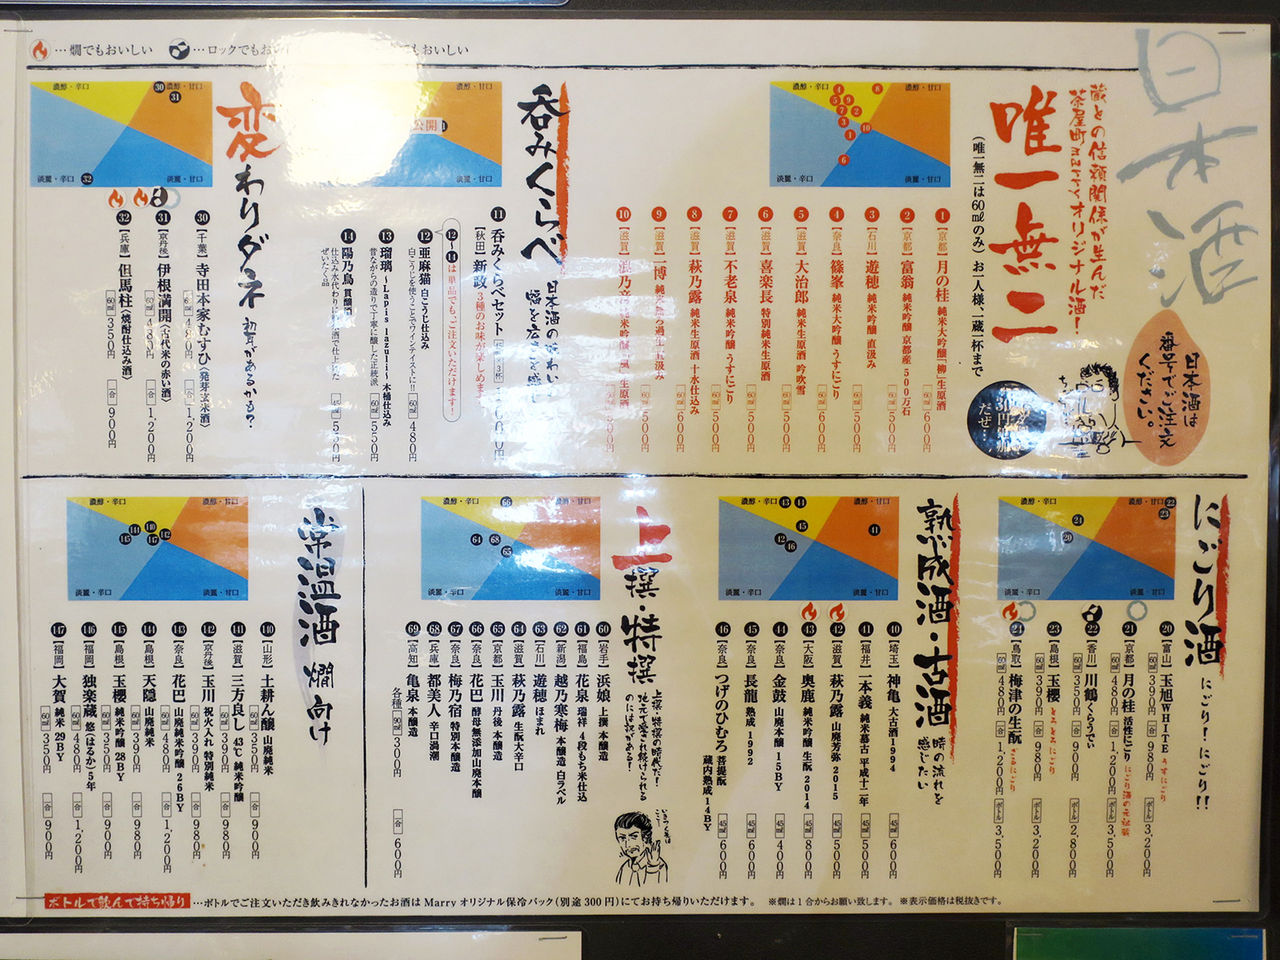 …燗でもおいしい
…ロックでもおい
でもおいしい
日本酒
日本酒は
番号でご注文
ください。
蔵との信頼関係が生んだ
茶屋町Marryオリジナル酒!
唯一無二
(唯一無二は60㎖のみ) お一人様、一蔵一杯まで
濃醇・辛口
濃醇・甘口
淡麗・辛口
淡麗・甘口
1 【京都】 月の桂 純米大吟醸「柳」生原酒 60㎖ 600円
2 【京都】 富翁 純米吟醸 京都産500万石 60㎖ 500円
3 【石川】 遊穂 純米吟醸 直汲み 60㎖ 500円
4 【奈良】 篠峯 純米大吟醸 うすにごり 60㎖ 500円
5 【滋賀】 大治郎 純米生原酒 吟吹雪 60㎖ 500円
6 【滋賀】 喜楽長 特別純米生原酒 60㎖ 500円
7 【滋賀】 不老泉 純米吟醸 うすにごり 60㎖ 500円
8 【滋賀】 萩乃露 純米生原酒 十水仕込み 60㎖ 600円
9 【滋賀】 一博 純米 60㎖ 500円
10 【滋賀】 浪乃音 純米吟醸 生原酒 500円
呑みくらべ
日本酒の味わい
幅を広さを感じ
淡麗・甘口
11 呑みくらべセット
【秋田】 新政 3種のお味が楽しめます
12~14は単品でも、ご注文いただけます!
12 亜麻猫 白こうじ仕込み 60㎖ 480円
白こうじを使うことでワインテイストに!!
13 瑠璃 ~Lapis lazuli~ 木桶仕込み 60㎖ 550円
昔ながらの造りで丁寧に醸した正統派
14 陽乃鳥 貴醸酒 60㎖ 550円
仕込み水代わりに日本酒で仕上げた
ぜいたく品
変わりダネ
初耳があるかも?
濃醇・辛口
濃醇・甘口
淡麗・辛口
淡麗・甘口
30 【千葉】 寺田本家むすひ(発芽玄米酒) 60㎖ 480円 合 1,200円
31 【京丹後】 伊根満開(古代米の赤い酒) 60㎖ 480円 合 1,200円
32 【兵庫】 但馬柱(焼酎仕込み酒) 60㎖ 350円 合 900円
にごり酒
にごり!にごり!!
濃醇・辛口
濃醇・甘口
淡麗・辛口
淡麗・甘口
20 【富山】 玉旭WHITE うすにごり 60㎖ 390円 合 980円 ボトル 3,200円
21 【京都】 月の桂 活性にごり にごり酒の元祖蔵 60㎖ 480円 合 1,200円 ボトル 3,500円
22 【香川】 川鶴くらうでぃ 60㎖ 350円 合 900円 ボトル 2,800円
23 【島根】 玉櫻 とろとろにごり 60㎖ 390円 合 980円 ボトル 3,200円
24 【鳥取】 梅津の生酛 ざるにごり 60㎖ 480円 合 1,200円 ボトル 3,500円
熟成酒・古酒
時の流れを
感じたい
濃醇・辛口
濃醇・甘口
淡麗・辛口
淡麗・甘口
40 【埼玉】 神亀 大古酒1994 45㎖ 600円
41 【福井】 一本義 純米嘉古 平成十二年 45㎖ 400円
42 【滋賀】 萩乃露 山廃芳弥 2015 45㎖ 500円
43 【大阪】 奥鹿 純米吟醸 生酛 2014 45㎖ 800円
44 【奈良】 金鼓 山廃本醸 15BY 45㎖ 400円
45 【奈良】 長龍 熟成 1992 45㎖ 600円
46 【奈良】 つげのひむろ 菩提酛 蔵内熟成14BY 45㎖ 600円
上撰・特撰
上撰・特撰の時代だ!
地元で愛され続けられる
のには訳がある!
濃醇・辛口
濃醇・甘口
淡麗・辛口
淡麗・甘口
60 【岩手】 浜娘 上撰 本醸造
61 【福島】 花泉 瑞祥 4段もち米仕込
62 【新潟】 越乃寒梅 本醸造 白ラベル
63 【石川】 遊穂 ほまれ
64 【滋賀】 萩乃露 生酛大辛口
65 【京都】 玉川 丹後 本醸造
66 【奈良】 花巴 酵母無添加山廃本醸
67 【奈良】 梅乃宿 特別本醸造
68 【兵庫】 都美人 辛口渦潮
69 【高知】 亀泉 本醸造
各種 90㎖ 300円 合 600円
常温酒 燗向け
濃醇・辛口
濃醇・甘口
淡麗・辛口
淡麗・甘口
140 【山形】 土耕ん醸 山廃純米 60㎖ 350円 合 900円
141 【滋賀】 三方良し 43℃ 純米吟醸 60㎖ 390円 合 980円
142 【京丹後】 玉川 祝火入れ 特別純米 60㎖ 390円 合 980円
143 【奈良】 花巴 山廃純米吟醸 26BY 60㎖ 480円 合 1,200円
144 【島根】 天隠 山廃純米 60㎖ 390円 合 980円
145 【島根】 玉櫻 純米吟醸 28BY 60㎖ 350円 合 900円
146 【福岡】 独楽蔵 悠(はるか)5年 60㎖ 480円 合 1,200円
147 【福岡】 大賀 純米 29BY 60㎖ 350円 合 900円
ボトルで飲んで持ち帰り …ボトルでご注文いただき飲みきれなかったお酒は Marry オリジナル保冷バック(別途300円)にてお持ち帰りいただけます。 ※燗は1合からお願い致します。 ※表示価格は税抜きです。